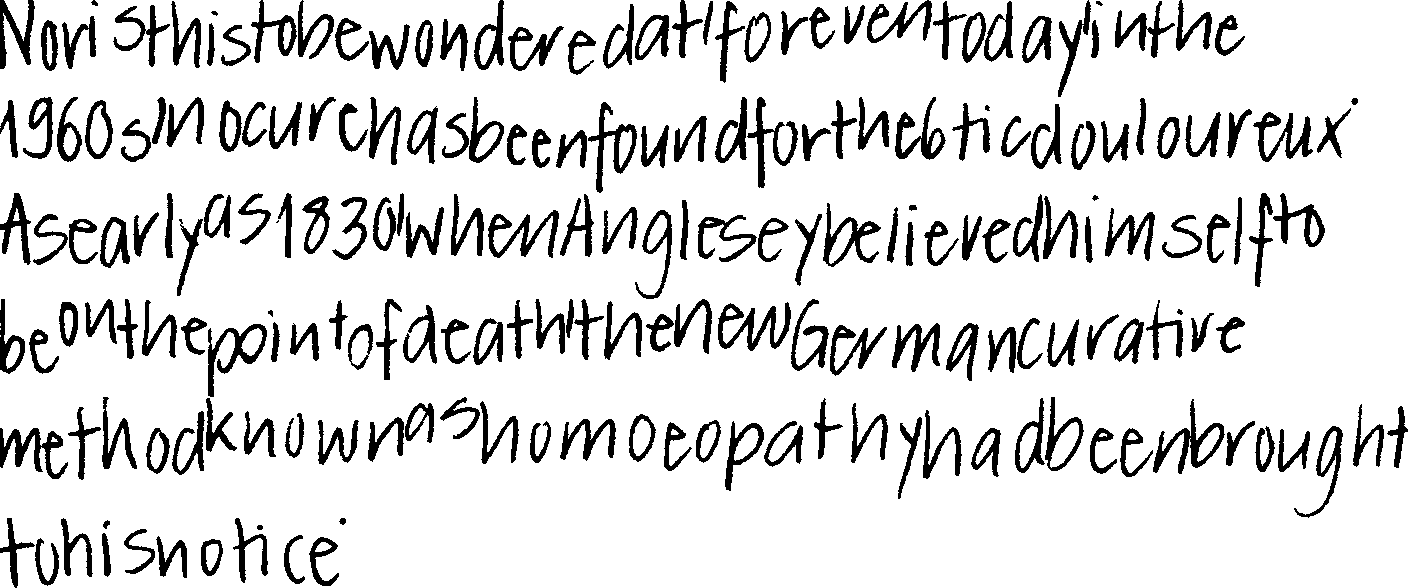 Nor is this to be wondered at, for even today, in the
1960s, no cure has been found for the 6 tic douloureux.
As early as 1830, when Anglesey believed himself to
be on the point of death, the new German curative
method known as homoeopathy had been brought
to his notice.